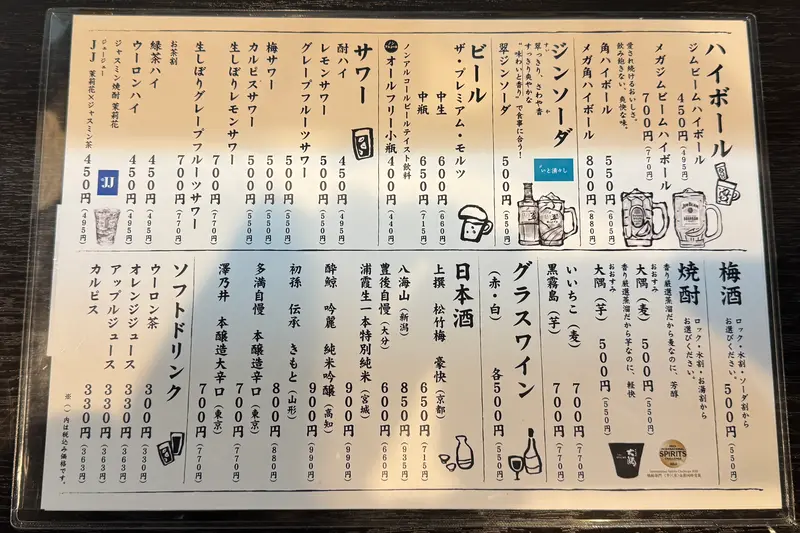 ハイボール
ジムビームハイボール
450円(495円)
メガジムビームハイボール
700円(770円)
愛され続けるおいしさ。
飲み飽きない、爽快な味。
角ハイボール
550円(605円)
メガ角ハイボール
800円(880円)
ジンソーダ
翠(すい)
翠っきり、さわや香(か)
すっきり爽やかな
"味わいと香り"で食事に合う!
翠ジンソーダ
500円(550円)
いと清々し
ビール
ザ・プレミアム・モルツ
中生 600円(660円)
中瓶 650円(715円)
ノンアルコールビールテイスト飲料
オールフリー小瓶
400円(440円)
サワー
酎ハイ 450円(495円)
レモンサワー 500円(550円)
グレープフルーツサワー
500円(550円)
梅サワー 500円(550円)
カルピスサワー 500円(550円)
生しぼりレモンサワー
700円(770円)
生しぼりグレープフルーツサワー
700円(770円)
お茶割
緑茶ハイ 450円(495円)
ウーロンハイ 450円(495円)
ジャスミン焼酎 茉莉花
ジェージェー
JJ 茉莉花×ジャスミン茶
450円(495円)
JJ
梅酒
ロック・水割・ソーダ割から
お選びください。
500円(550円)
焼酎
ロック・水割・お湯割から
お選びください。
香り厳選蒸溜だから麦なのに、芳醇
おおすみ
大隅(麦) 500円(550円)
香り厳選蒸溜だから芋なのに、軽快
おおすみ
大隅(芋) 500円(550円)
大隅
SPIRITS
いいちこ(麦) 700円(770円)
黒霧島(芋) 700円(770円)
グラスワイン
(赤・白) 各500円(550円)
日本酒
上撰 松竹梅 豪快(京都)
650円(715円)
八海山(新潟) 850円(935円)
豊後自慢(大分) 600円(660円)
浦霞生一本特別純米(宮城)
900円(990円)
酔鯨 吟麗 純米吟醸(高知)
900円(990円)
初孫 伝承 きもと(山形)
800円(880円)
多満自慢 本醸造辛口(東京)
700円(770円)
澤乃井 本醸造大辛口(東京)
700円(770円)
ソフトドリンク
ウーロン茶 300円(363円)
オレンジジュース 330円(363円)
アップルジュース 330円(363円)
カルピス 330円(363円)
※( )内は税込み価格です。